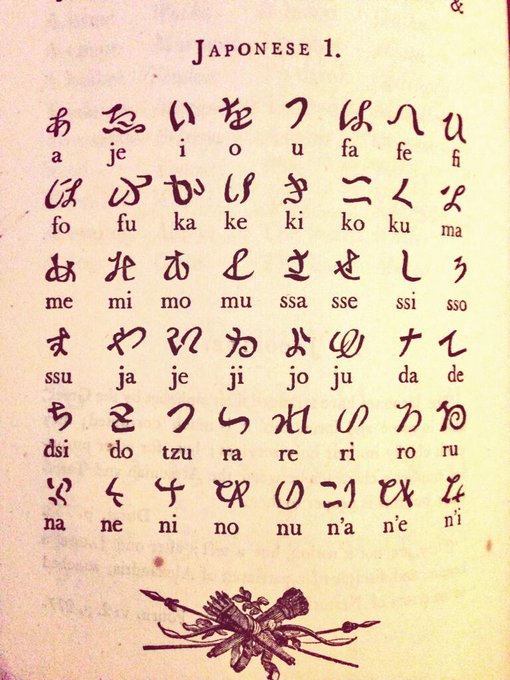 &
JAPONESE 1.
あ ゑ い を つ は へ ひ
a je i o u fa fe fi
か け き こ く
fo fu ka ke ki ko ku ma
め み も さ せ し ろ
me mi mo mu ssa sse ssi sso
す や ゐ よ ゆ ナ て
ssu ja je ji jo ju da de
ち を つ ら れ り ろ る
dsi do tzu ra re ri ro ru
na ne ni no nu n'a n'e n'i